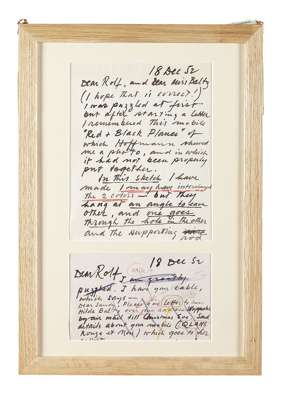 18 Dec 52
Dear Rolf, and Dear Miss Balty
(I hope that is correct!)
I was puzzled at first
but after starting a letter
I remembered this mobile
"Red + Black Planes" of
which Hoffmann showed
me a photo, and in which
it had not been properly
put together.
In this sketch I have
made I may have interchanged
the 2 colors — but they
hang at an angle to each
other, and one goes
through the hole in the other
and the supporting
rod
18 Dec 52
Dear Rolf,
puzzled. I have your cable,
which says —
letter
Hilda Balty
by air mail till Christmas Eve. Send
details about your mobile
goes to her